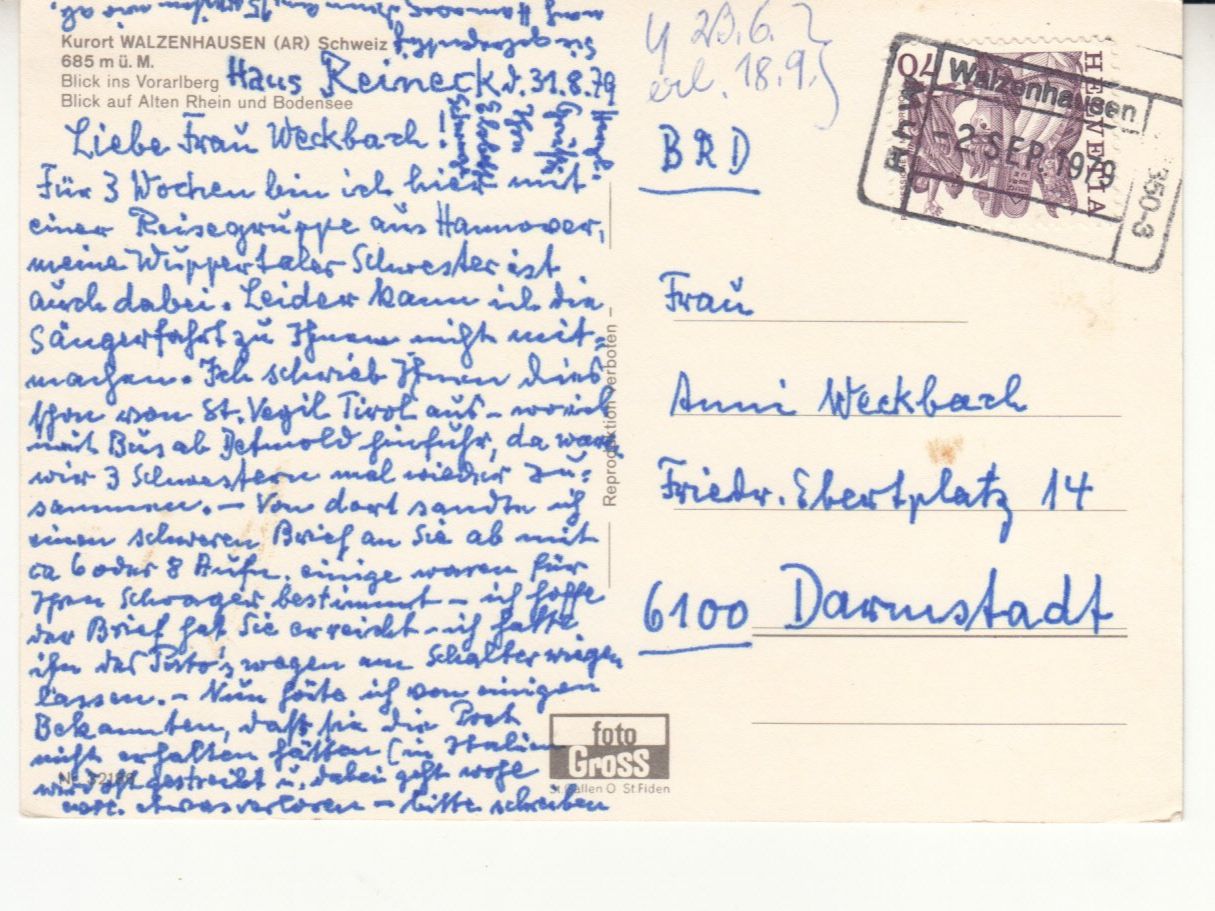 Kurort WALZENHAUSEN (AR) Schweiz
685 m ü. M.
Blick ins Vorarlberg
Blick auf Alten Rhein und Bodensee
Haus Reineck d. 31.8.79
Liebe Frau Weckbach!
Für 3 Wochen bin ich hier mit
einer Reisegruppe aus Hannover,
meine Wuppertaler Schwester ist
auch dabei. Leider kann ich die
Sängerfahrt zu Ihnen nicht mit-
machen. Ich schrieb Ihnen dies
schon von St. Vegil Tirol aus - wo ich
mit Bus ab Detmold hinfuhr, da waren
wir 3 Schwestern mal wieder zu-
sammen. - Von dort sandte ich
einen schweren Brief an Sie ab mit
ca 6 oder 8 Aufn. einige waren für
Ihren Schwager bestimmt - ich hoffe
der Brief hat Sie erreicht - ich hatte
ihn des Porto's wegen am Schalter wiegen
lassen. - Nun hörte ich von einigen
Bekannten, daß sie die Post
nicht erhalten hätten (in Italien
wird oft gestreikt u. dabei geht wohl
etwas verloren - bitte schreiben
Sie
nach Hannover
15
ab.
23.6.
erl. 18.9.
BRD
Frau
Anni Weckbach
Friedr. Ebertplatz 14
6100 Darmstadt
Reproduktion verboten
foto
Gross
St. Gallen O St Fiden
HELVETIA
70
Walzenhausen
-2 SEP. 1979
350-3